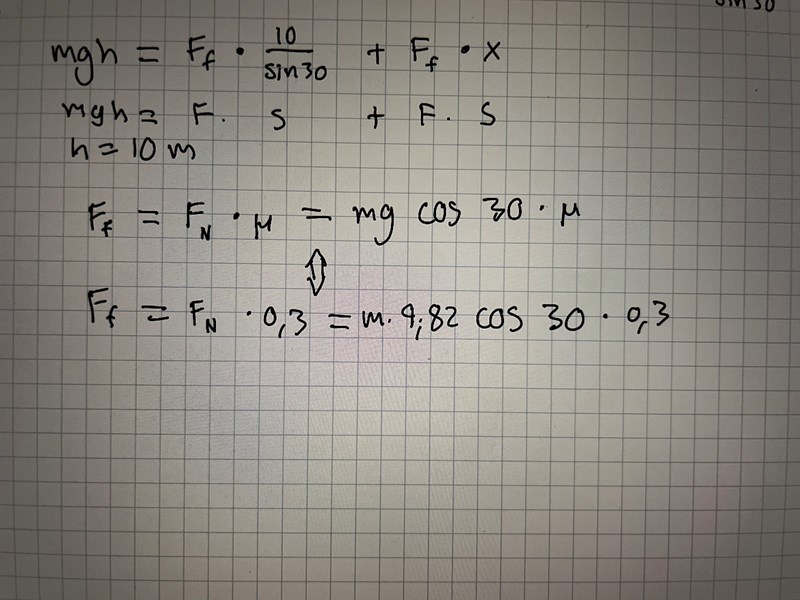 sin30
mgh = F_f · 10/sin30 + F_f · x
mgh = F. s + F. s
h = 10 m
F_f = F_N · μ = mg cos 30 · μ
⇕
F_f = F_N · 0,3 = m. 9,82 cos 30 · 0,3